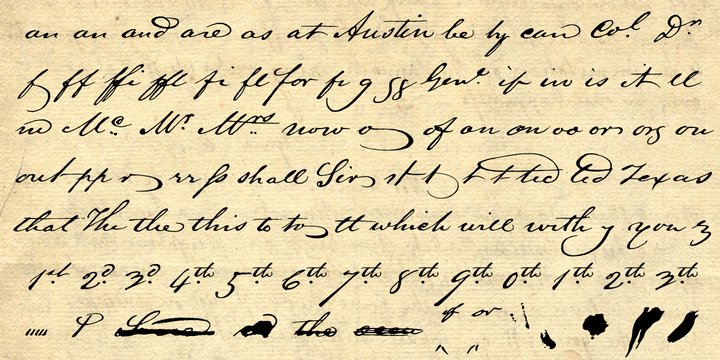 an an and are as at Austin be by can Col. Dr.
f ff ffi ffl fi fl for fr g gg Genl. if in is it ll
m Mc. Mr. Mrs. now o of on on oo or org ou
out pp r rr ss shall Sir st t t t ted ted Texas
that The the this to to tt which will with y you z
1st 2d 3d 4th 5th 6th 7th 8th 9th 0th 1th 2th 3th
P the of or